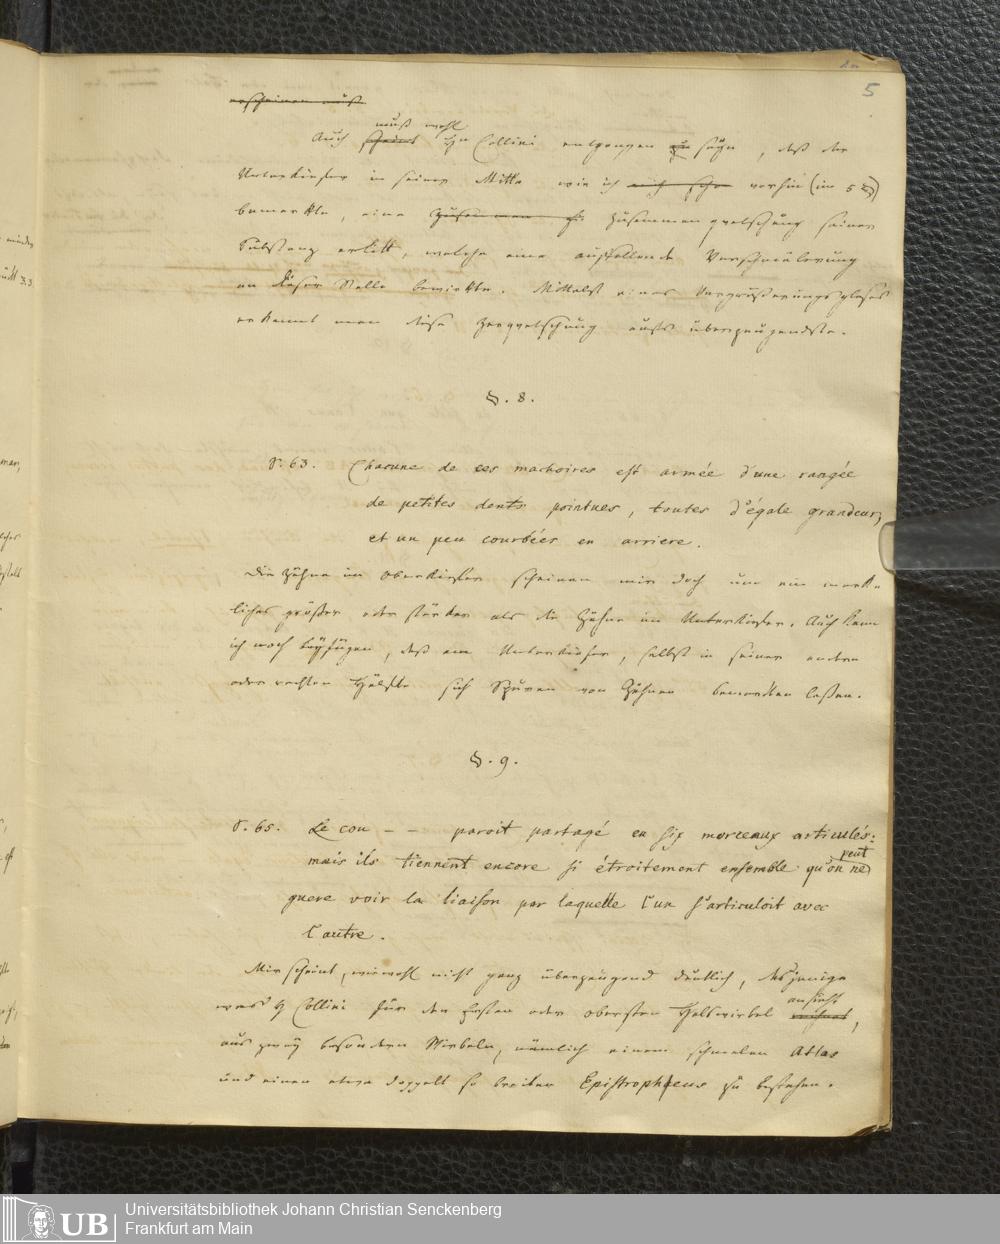 5
erscheinen muß
muß wohl
Auch scheint Hn Collini entgangen zu seyn, daß der
Unterkiefer in seiner Mitte wie ich vorhin (im 5 §)
bemerkte, eine Zusammen Zusammenquetschung seiner
Substanz erlitt, welche eine auffallende Verschmälerung
an dieser Stelle bewirkte. Mittelst eines Vergrößerungsglases
erkennt man diese Zerquetschung aufs überzeugendste.
§. 8.
S. 63. Chacune de ces machoires est armée d'une rangée
de petites dents pointues, toutes d'égale grandeur,
et un peu courbées en arriere.
Die Zähne im Oberkiefer scheinen mir doch um ein merk-
liches größer oder stärker als die Zähne im Unterkiefer. Auch kann
ich noch beyfügen, daß am Unterkiefer, selbst in seiner andern
oder rechten Hälfte sich Spuren von Zähnen bemerken laßen.
§. 9.
S. 65. Le cou – – paroit partagé en six morceaux articulés:
mais ils tiennent encore si étroitement ensemble qu'on ne peut
guere voir la liaison par laquelle l'un s'articuloit avec
l'autre.
Mir scheint, wiewohl nicht ganz überzeugend deutlich, dasjenige
was H Collini für den ersten oder obersten Halswirbel ansieht,
aus zwey besondern Wirbeln, nämlich einem schmalen Atlas
und einem etwa doppelt so breiten Epistropheus zu bestehen.
UB
Universitätsbibliothek Johann Christian Senckenberg
Frankfurt am Main